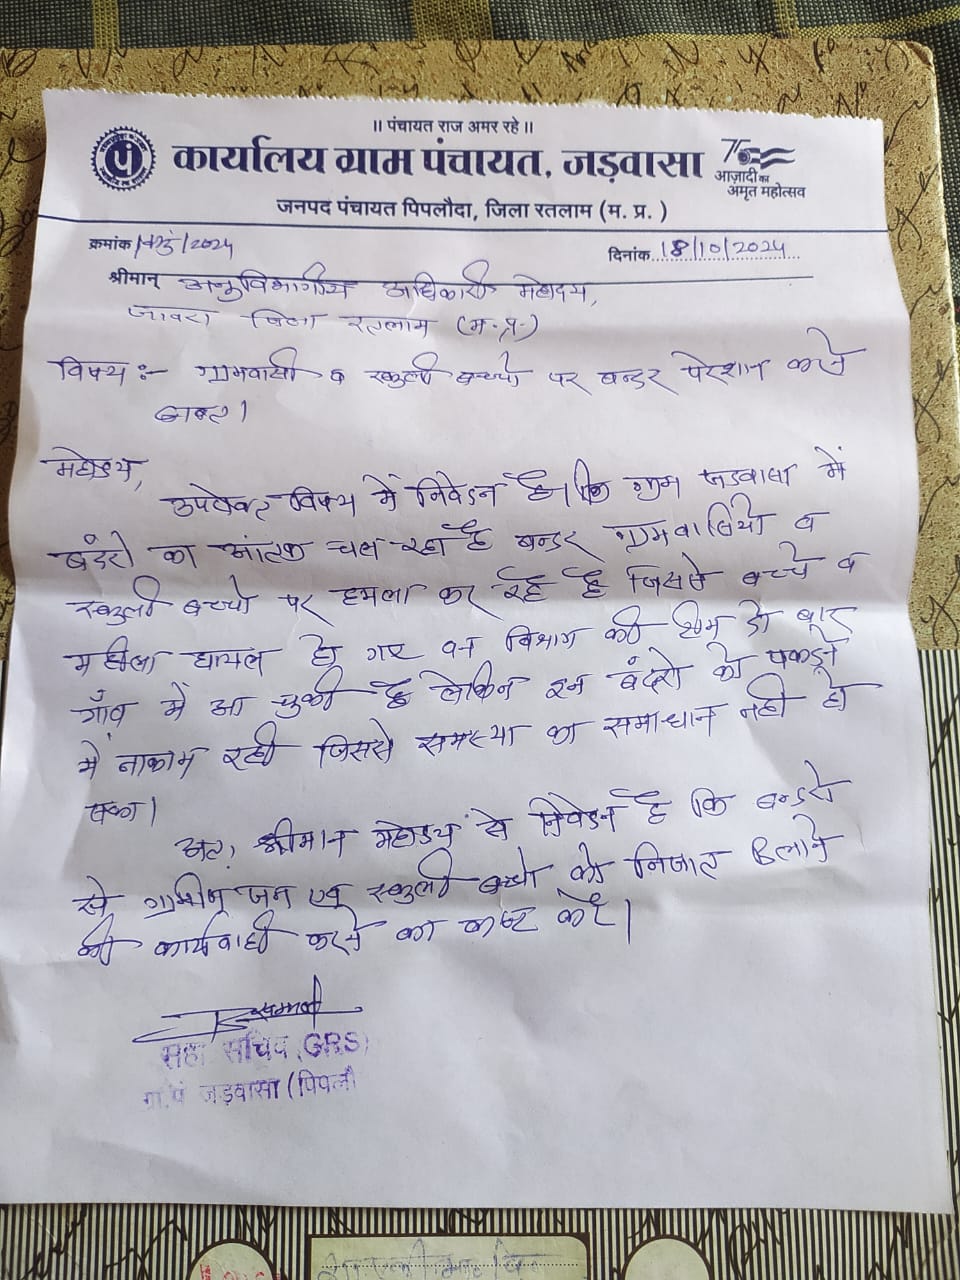 ॥ पंचायत राज अमर रहे ॥
कार्यालय ग्राम पंचायत, जड़वासा
75
आज़ादी का
अमृत महोत्सव
जनपद पंचायत पिपलौदा, जिला रतलाम (म. प्र. )
क्रमांक/ /2024
दिनांक 18/10/2024
श्रीमान् अनुविभागीय अधिकारी महोदय,
जावरा जिला रतलाम (म.प्र.)
विषय :- ग्रामवासी व स्कुली बच्चो पर बन्डर परेशान करने
बाबत।
महोदय,
उपरोक्त विषय में निवेदन है कि ग्राम जडवासा में
बंदरो का आंतक चल रहा है बन्डर ग्रामवासियो व
स्कुली बच्चो पर हमला कर रहे है जिससे बच्चे व
महीला घायल हो गए वन विभाग की टीम दो बार
गाँव में आ चुकी है लेकिन इन बंदरो को पकड़ने
में नाकाम रही जिससे समस्या का समाधान नही हो
सका।
अतः श्रीमान महोदय से निवेदन है कि बन्डरो
से ग्रामीण जन एवं स्कुली बच्चो को निजात दिलाने
की कार्यवाही करने का कष्ट करे।
सहा सचिव (GRS)
ग्रा.पं जड़वासा (पिपलौ